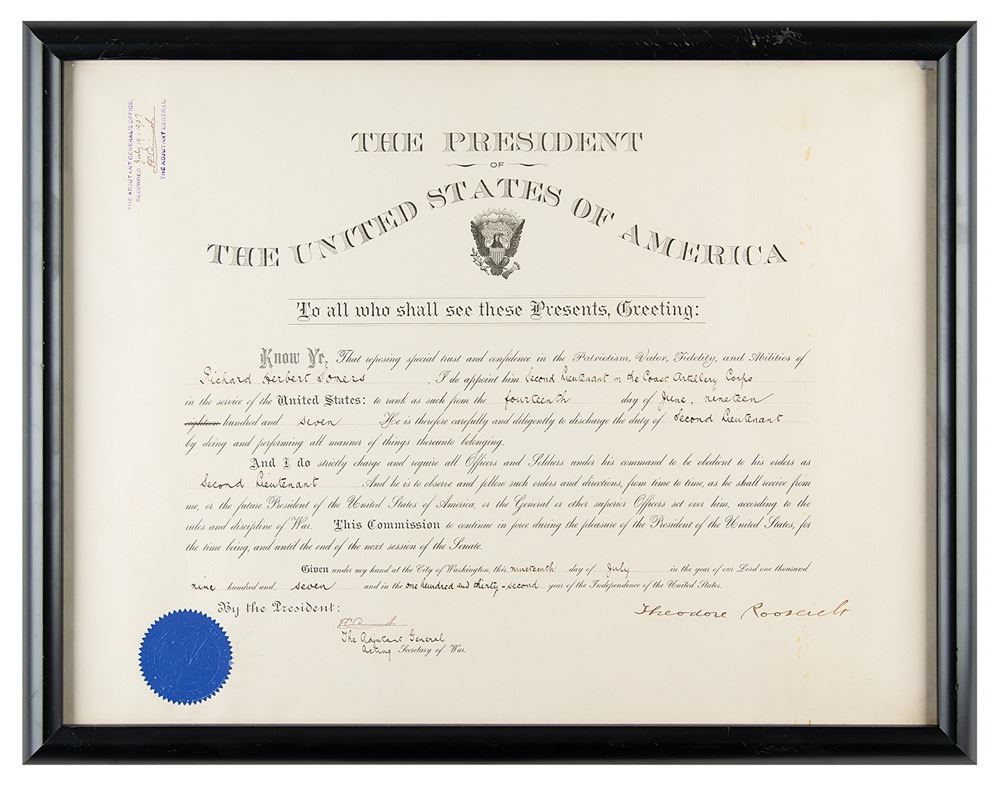 THE ADJUTANT GENERAL'S OFFICE,
RECORDED July 19, 1907
THE ADJUTANT GENERAL.
THE PRESIDENT
OF
THE UNITED STATES OF AMERICA
To all who shall see these Presents, Greeting:
Know Ye, That reposing special trust and confidence in the Patriotism, Valor, Fidelity, and Abilities of
Richard Herbert Somers, I do appoint him Second Lieutenant in the Coast Artillery Corps
in the service of the United States: to rank as such from the fourteenth day of June, nineteen
eighteen hundred and seven. He is therefore carefully and diligently to discharge the duty of Second Lieutenant
by doing and performing all manner of things thereunto belonging.
And I do strictly charge and require all Officers and Soldiers under his command to be obedient to his orders as
Second Lieutenant And he is to observe and follow such orders and directions, from time to time, as he shall receive from
me, or the future President of the United States of America, or the General or other superior Officers set over him, according to the
rules and discipline of War. This Commission to continue in force during the pleasure of the President of the United States, for
the time being, and until the end of the next session of the Senate.
Given under my hand at the City of Washington, this nineteenth day of July in the year of our Lord one thousand
nine hundred and seven and in the one hundred and thirty-second year of the Independence of the United States.
By the President:
Theodore Roosevelt
The Adjutant General
Acting Secretary of War.